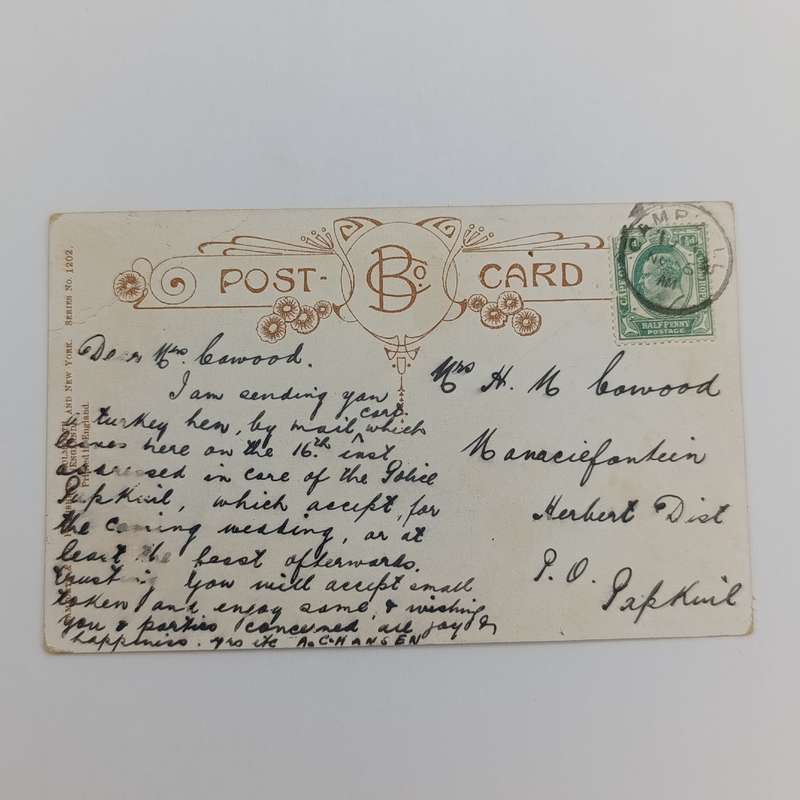 POST- BCo. CARD
CAPE OF
HALFPENNY
POSTAGE
SERIES No. 1202.
AND NEW YORK.
ENGLAND
Printed in England.
Dear Mrs Cowood.
I am sending you
a turkey hen, by mail cart which
leaves here on the 16th inst
addressed in care of the Police
PapKuil, which accept, for
the coming wedding, or at
least the feast afterwards.
trusting you will accept small
token and enjoy same, & wishing
you & parties concerned all joy &
happiness. yrs etc A.C. HANSEN
Mrs H. M Cowood
Manaciefontein
Herbert Dist
P. O. PapKuil